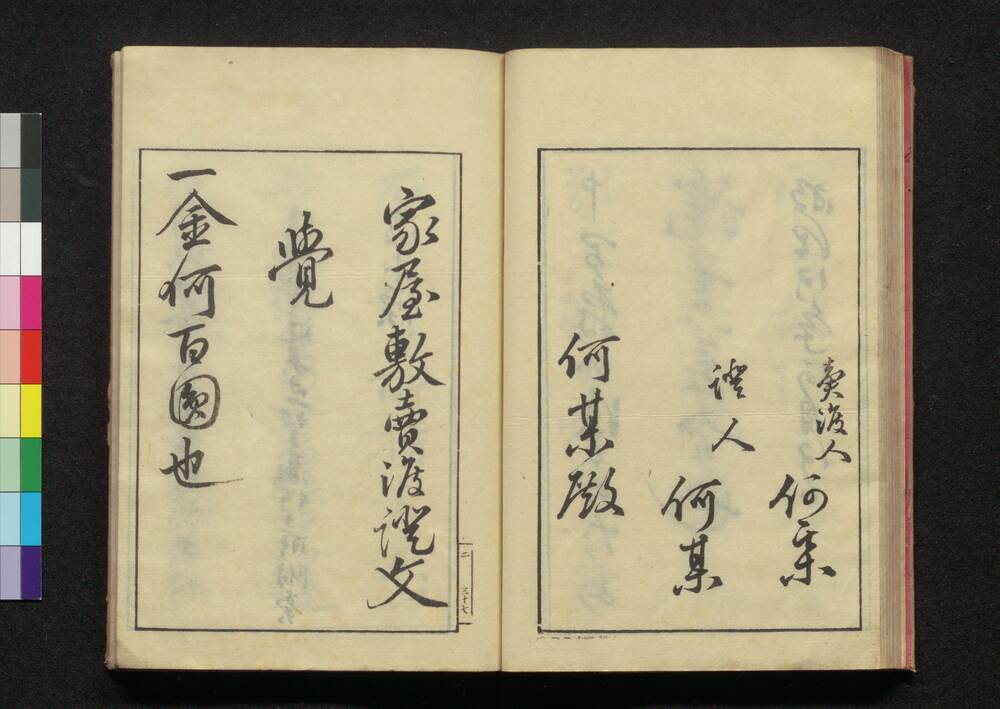 賣渡人
何某
證人
何某
何某殿
家屋敷賣渡證文
覺
一金何百圓也
二 三十七